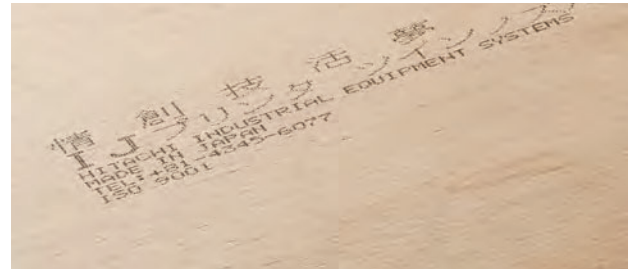 情 創 技 活 夢
IJプリンタ ツインノズル
HITACHI INDUSTRIAL EQUIPMENT SYSTEMS
MADE IN JAPAN
TEL:+81-4345-6077
ISO 9001